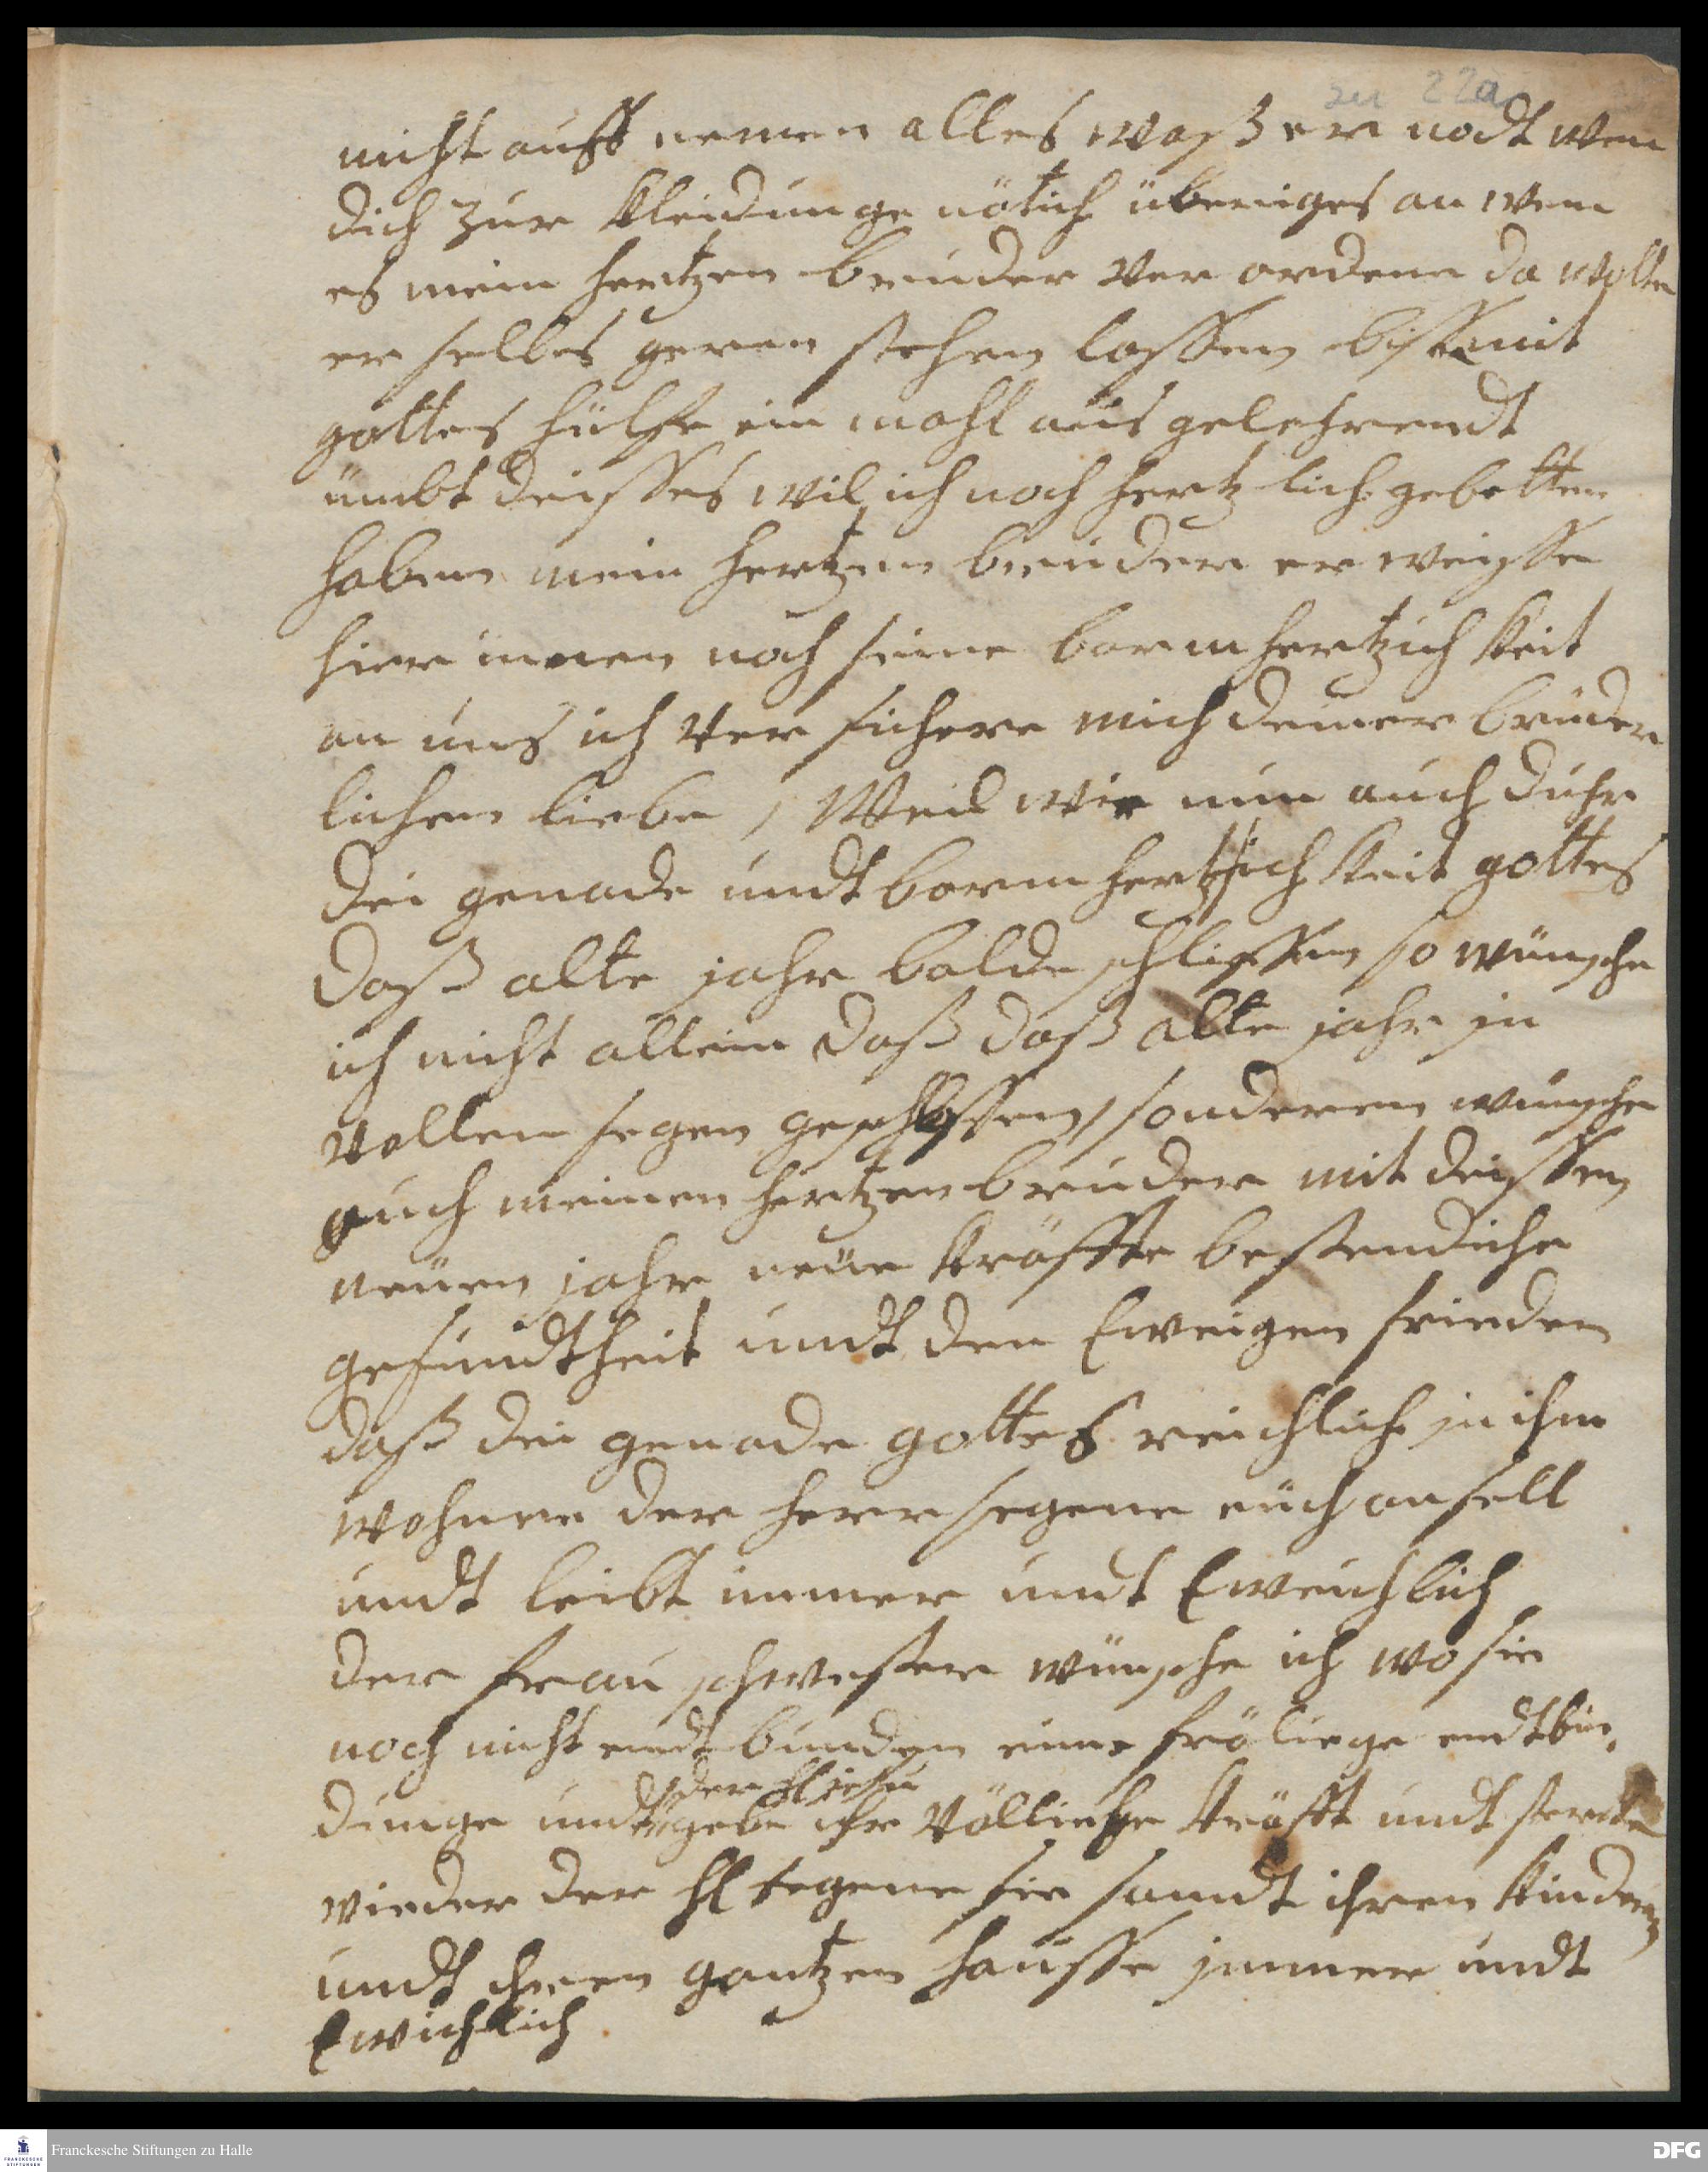 zu 22a
nicht auff nemen alles waß er nodt wen
dich zur kleidunge nötich überiges an wem
es mein hertzen bruder ver ordene da wolte
er selbes geren stehen lassen biss mit
gottes hülfe ein mahl aus gelehrendt
umbt deisses wil ich noch hertz lich gebetten
haben mein hertzen bruder er weisse
hier innen noch seine barm hertzich keit
an uns ich ver sichere mich deiner brüder
lichen liebe / Weil wir nun auch duhr
dei genade undt barm hertzich keit gottes
daß alte jahr balde schlissen so wünsche
ich nicht allein daß daß alte jahr in
vollen segen geschlossen, sonderen wünsche
auch meinen hertzen bruder mit deissen
neuen jahr neue kräffte bestendiche
gesundtheit undt den Eweigen frieden
daß dei genade gottes reichlich in ihm
wohnen der herr segene euch an sell
undt leibt immer undt Eweichlich
der frau schwester wünsche ich wo sie
noch nicht endt bunden eine fröliege endtbin,
der hl jesu
dunge undt gebe ihr völliche kräfft undt stercke
wieder der hl segene sie samdt ihren kinderen
undt ihren gantzen hausse immer undt
Ewichlich
Franckesche Stiftungen zu Halle
DFG
FRANCKESCHE
STIFTUNGEN